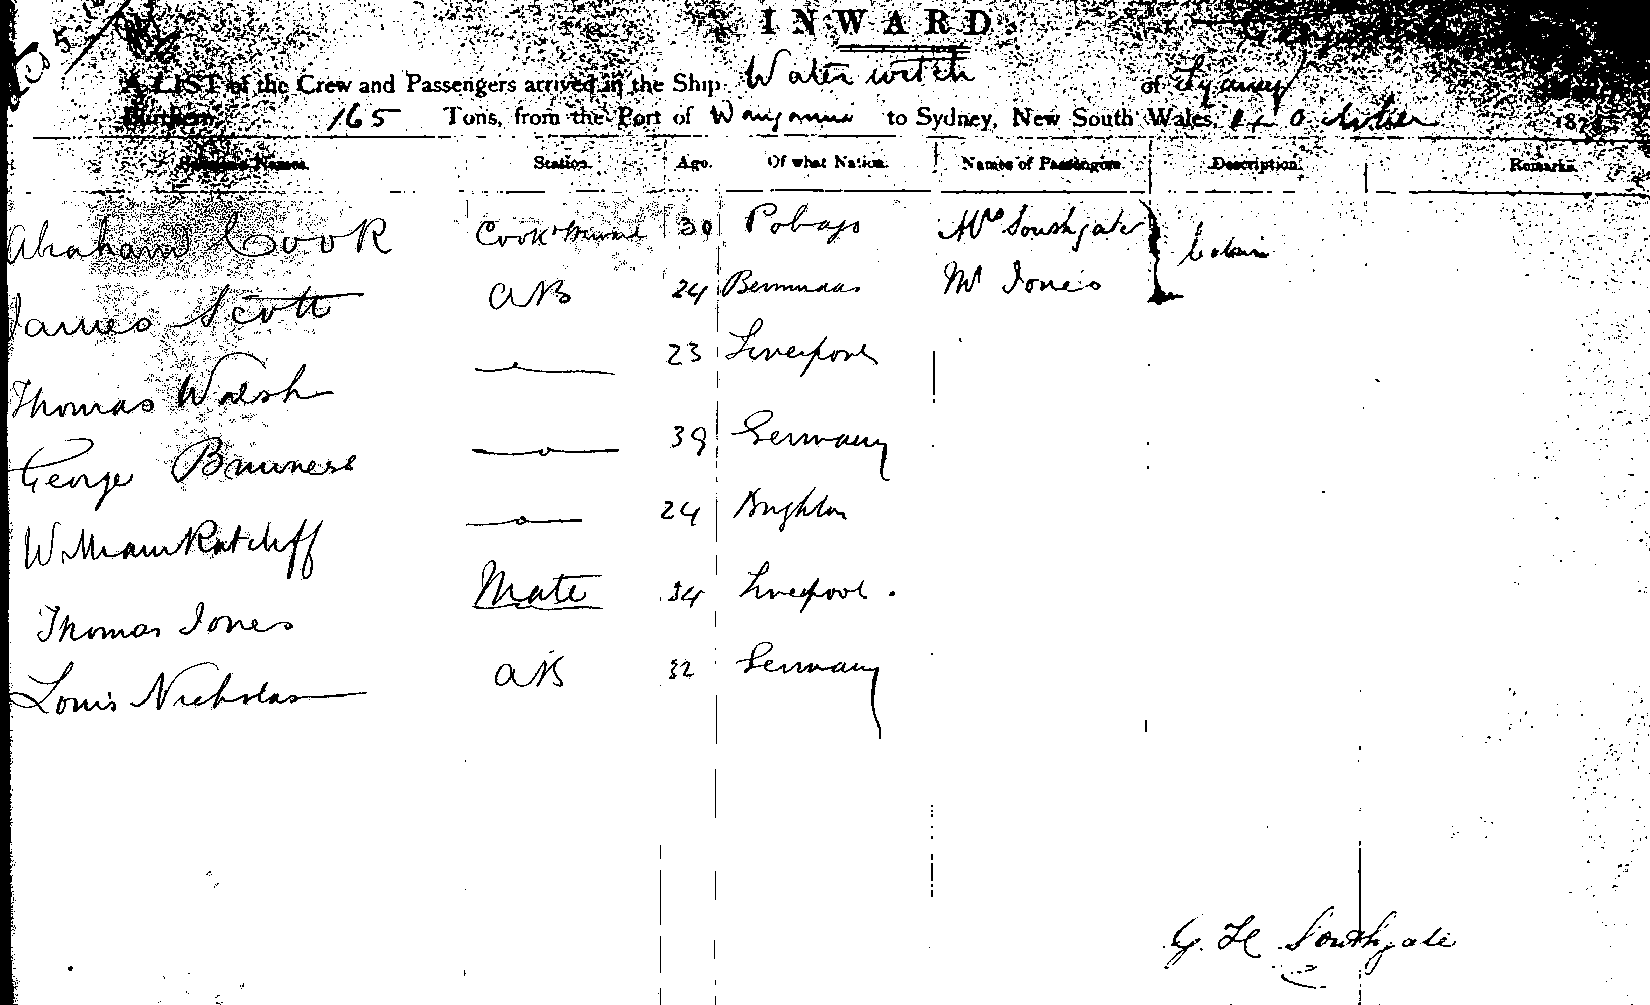 INWARD.
A LIST of the Crew and Passengers arrived in the Ship Water witch of Sydney
Burthen, 165 Tons, from the Port of to Sydney, New South Wales, October 187
Names. Station. Age. Of what Nation. Names of Passengers. Description. Remarks.
Abraham Cook Cook & 30 Mrs Southgate Cabin
James Scott AB 24 Bermudas Mr Jones
Thomas Walsh 23 Liverpool
George 39 Germany
William Ratcliff 24 Brighton
Thomas Jones Mate 34 Liverpool.
Louis Nicholas AB 32 Germany
G. H. Southgate